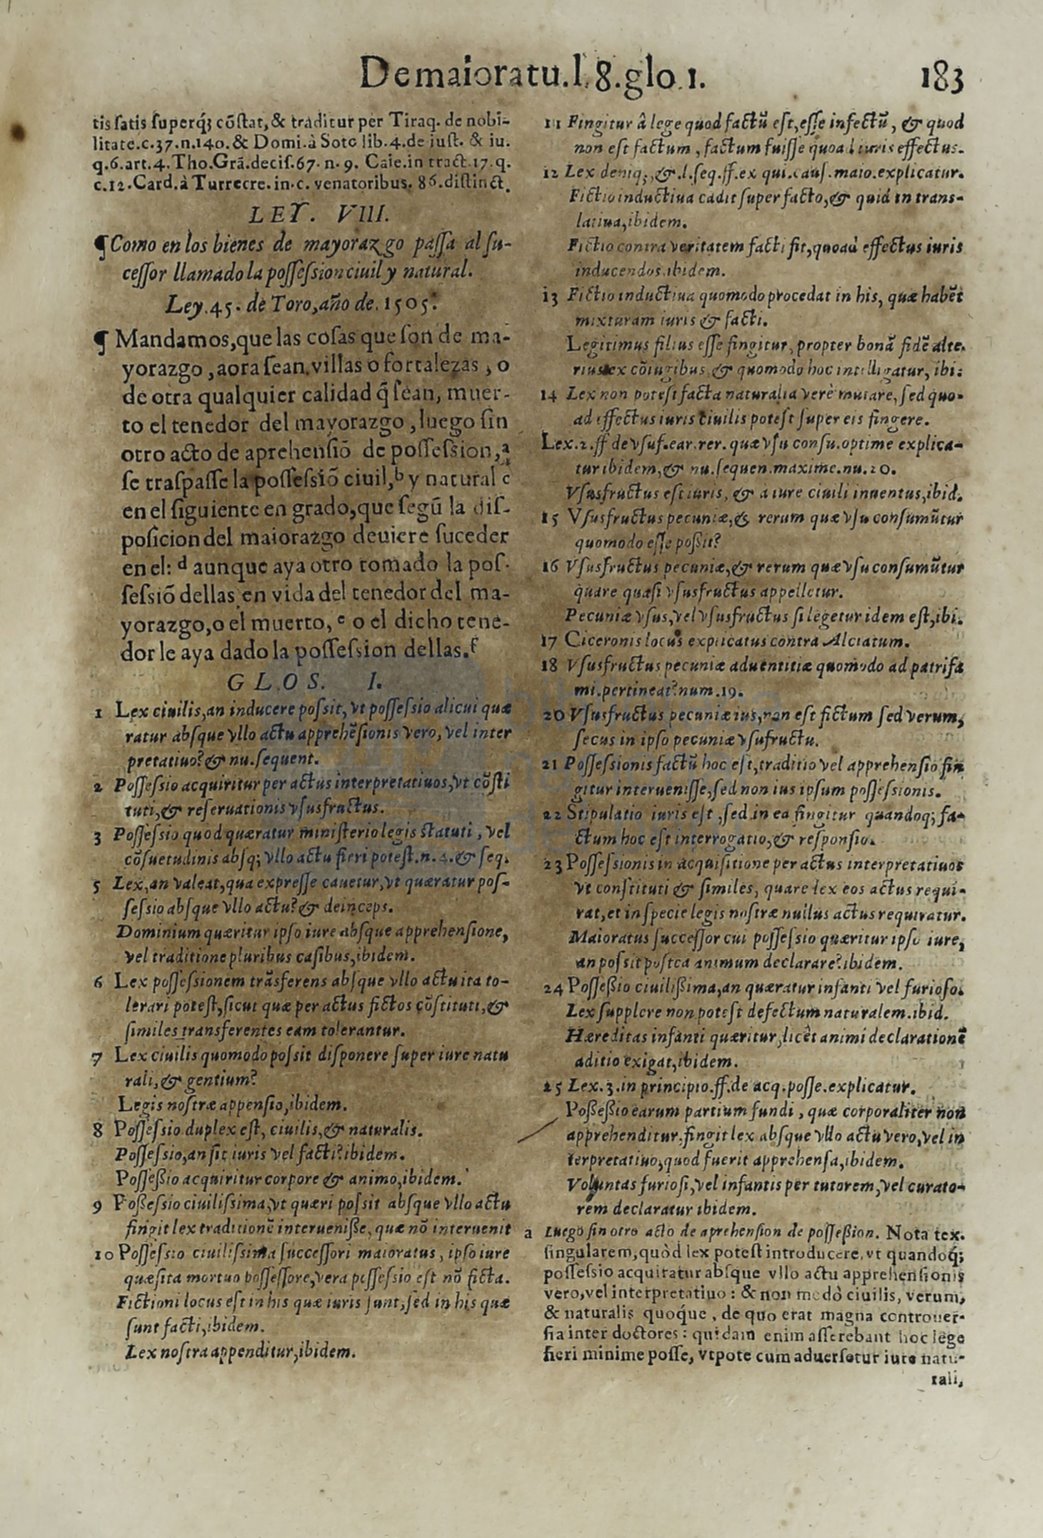 De maioratu.l.8.glo.1. 183
tis satis superq́; cõstat,& traditur per Tiraq. de nobi-
litate.c.37.n.140.& Domi.à Soto lib.4.de iust. & iu.
q.6.art.4.Tho.Grã.decis.67.n.9. Caie.in tract.17.q.
c.12.Card.à Turrecre.in.c. venatoribus. 86.distinct.
LEY. VIII.
¶Como en los bienes de mayorazgo passa al su-
cessor llamado la possession ciuil y natural.
Ley.45. de Toro,año de.1505.
¶ Mandamos,que las cosas que son de ma-
yorazgo ,aora sean,villas o fortalezas , o
de otra qualquier calidad q̃ sean, muer-
to el tenedor del mayorazgo ,luego sin
otro acto de aprehensiõ de possession,a
se traspasse la possessiõ ciuil,b y natural c
en el siguiente en grado,que segũ la dis-
posicion del maiorazgo deuiere suceder
en el: d aunque aya otro tomado la pos-
sessiõ dellas en vida del tenedor del ma-
yorazgo,o el muerto, e o el dicho tene-
dor le aya dado la possession dellas.f
GLOS. I.
1 Lex ciuilis,an inducere possit,vt possessio alicui quæ
ratur absque vllo actu apprehẽsionis vero, vel inter
pretatiuo?& nu.sequent.
2 Possessio acquiritur per actus interpretatiuos,vt cõsti
tuti,& reseruationis vsusfructus.
3 Possessio quod quæratur ministerio legis statuti , vel
cõsuetudinis absq; vllo actu fieri potest.n.4.& seq.
5 Lex,an valeat,qua expresse cauetur,vt quæratur pos-
sessio absque vllo actu?& deinceps.
Dominium quæritur ipso iure absque apprehensione,
vel traditione pluribus casibus,ibidem.
6 Lex possessionem trãsferens absque vllo actu ita to-
lerari potest,sicut quæ per actus fictos cõstituti,&
similes transferentes eam tolerantur.
7 Lex ciuilis quomodo possit disponere super iure natu
rali,& gentium?
Legis nostræ appensio,ibidem.
8 Possessio duplex est, ciuilis,& naturalis.
Possessio,an sit iuris vel facti?ibidem.
Possessio acquiritur corpore & animo,ibidem.
9 Possessio ciuilissima,vt quæri possit absque vllo actu
fingit lex traditionẽ interuenisse, quæ nõ interuenit
10 Possessio ciuilissima successori maioratus , ipso iure
quæsita mortuo possessore,vera possessio est nõ ficta.
Fictioni locus est in his quæ iuris sunt,sed in his quæ
sunt facti,ibidem.
Lex nostra appenditur,ibidem.
11 Fingitur à lege quod factũ est,esse infectũ , & quod
non est factum , factum fuisse quoad iuris effectus.
12 Lex deniq;,& .l.seq.ff.ex qui.caus.maio.explicatur.
Fictio inductiua cadit super facto,& quid in trans-
latiua,ibidem.
Fictio contra veritatem facti fit,quoad effectus iuris
inducendos.ibidem.
13 Fictio inductiua quomodo procedat in his, quæ habẽt
mixturam iuris & facti.
Legitimus filius esse fingitur, propter bonã fidẽ alte-
rius ex cõiugibus,& quomodo hoc intelligatur, ibi:
14 Lex non potest facta naturalia verè mutare, sed quo-
ad effectus iuris ciuilis potest super eis fingere.
Lex.2.ff de vsuf.ear.rer. quæ vsu consu.optime explica-
tur ibidem,& nu.sequen.maxime.nu.20.
Vsusfructus est iuris, & a iure ciuili inuentus,ibid.
15 Vsusfructus pecuniæ,& rerum quæ vsu consumũtur
quomodo esse possit?
16 Vsusfructus pecuniæ,& rerum quæ vsu consumũtur
quare quasi vsusfructus appelletur.
Pecuniæ vsus,vel vsusfructus si legetur idem est,ibi.
17 Ciceronis locus explicatus contra Alciatum.
18 Vsusfructus pecuniæ aduentitiæ quomodo ad patrifa
mi.pertineat?num.19.
20 Vsusfructus pecuniæ ius,non est fictum sed verum,
secus in ipso pecuniæ vsufructu.
21 Possessionis factũ hoc est,traditio vel apprehensio fin
gitur interuenisse,sed non ius ipsum possessionis.
22 Stipulatio iuris est ,sed in ea fingitur quandoq; fa-
ctum hoc est interrogatio,& responsio.
23 Possessionis in acquisitione per actus interpretatiuos
vt constituti & similes, quare lex eos actus requi-
rat,et in specie legis nostræ nullus actus requiratur.
Maioratus successor cui possessio quæritur ipso iure,
an possit postea animum declarare?ibidem.
24 Possessio ciuilissima,an quæratur infanti vel furioso.
Lex supplere non potest defectum naturalem.ibid.
Hæreditas infanti quæritur,licèt animi declarationẽ
aditio exigat,ibidem.
25 Lex.3.in principio.ff.de acq.posse.explicatur.
Possessio earum partium fundi , quæ corporaliter non
apprehenditur.fingit lex absque vllo actu vero,vel in
terpretatiuo,quod fuerit apprehensa,ibidem.
Voluntas furiosi,vel infantis per tutorem,vel curato-
rem declaratur ibidem.
a Luego sin otro acto de aprehension de possession. Nota tex.
singularem,quòd lex potest introducere, vt quandoq;
possessio acquiratur absque vllo actu apprehensionis
vero,vel interpretatiuo : & non modò ciuilis, verum,
& naturalis quoque , de quo erat magna controuer-
sia inter doctores : quidam enim asserebant hoc lege
fieri minime posse, vtpote cum aduersetur iure natu-
rali,